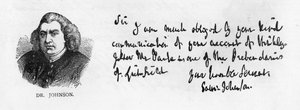 Sir
I am much obliged by your kind
communication of your account of
is one of the Prebendaries
of Lichfield
your humble Servant
Sam: Johnson
DR. JOHNSON.